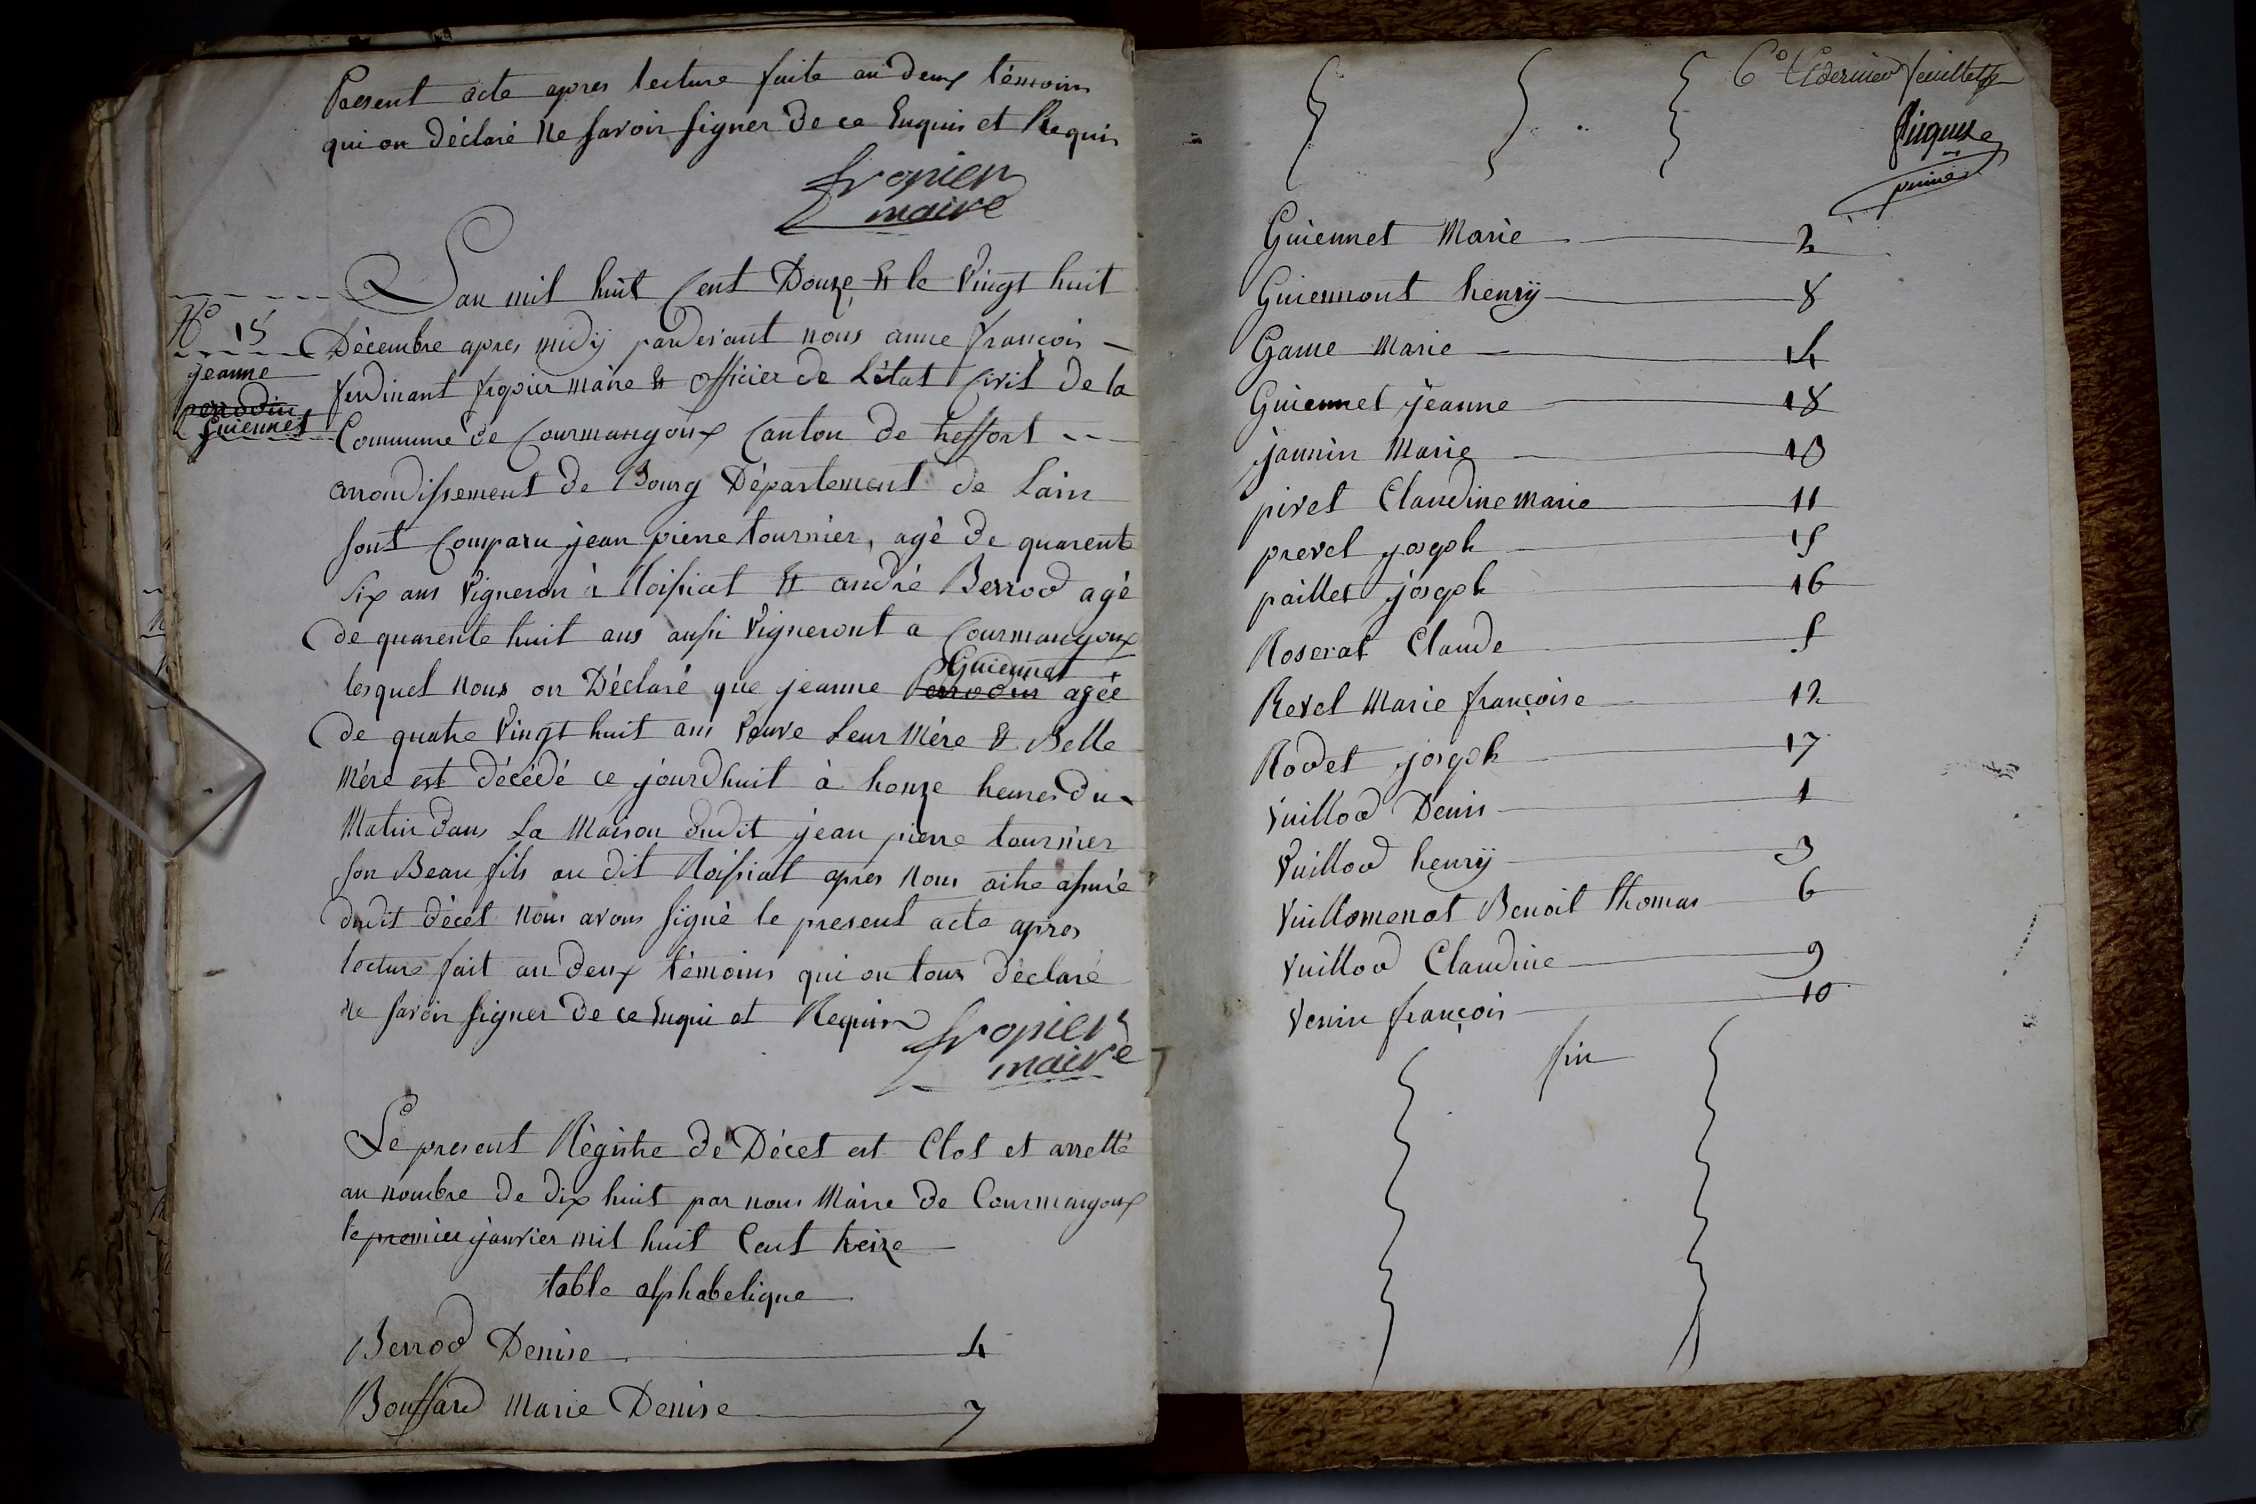 Present acte apres lecture faite au deux témoins
qui on déclaré ne savoir signer de ce Enquis et Requis
fropier
maire
L'an mil huit Cent Douze & le Vingt huit
Décembre apres midÿ pardevant nous anne françois
ferdinant fropier maire & officier de L'état Civil de la
Commune de Courmangoux Canton de treffort
arrondissement de Bourg Département de Lain
sont Comparu jean pierre tournier, agé de quarente
six ans Vigneron à Roissiat & andré Berrod agé
de quarente huit ans aussi Vigneront a Courmangoux
Guiennet
lesquel nous on Déclaré que jeanne perrodin agée
de quatre Vingt huit ans Veuve Leur Mére & Belle
Mére est décédé ce jourdhuit à honze heures du
Matin dans La Maison dudit jean pierre tournier
son Beau fils au dit Roissiat apres Nous aitre assuré
dudit décet Nous avons signé le present acte apres
lecture fait au deux témoins qui on tous déclaré
Ne savoir signer de ce Enqui et Requis
fropier
maire
Nº 18
jeanne
perrodin
Guiennet
Le present Régistre de Décet est Clot et arretté
au nombre de dix huit par nous Maire de Courmangoux
le premier janvier mil huit Cent treize
table alphabetique
Berrod Denise 4
Bouffard Marie Denise 7
6º & dernier feuillet
premier
Guiennet Marie 2
Guiermont henrÿ 8
Game Marie 14
Guiennet jeanne 18
jannin Marie 13
pivet Claudine marie 11
prevel joseph 15
paillet joseph 16
Roserat Claude 5
Revel Marie françoise 12
Rodet joseph 17
Vuillod Denis 1
Vuillod henrÿ 3
Vuillomenot Benoit thomas 6
Vuillod Claudine 9
Venin françois 10
fin